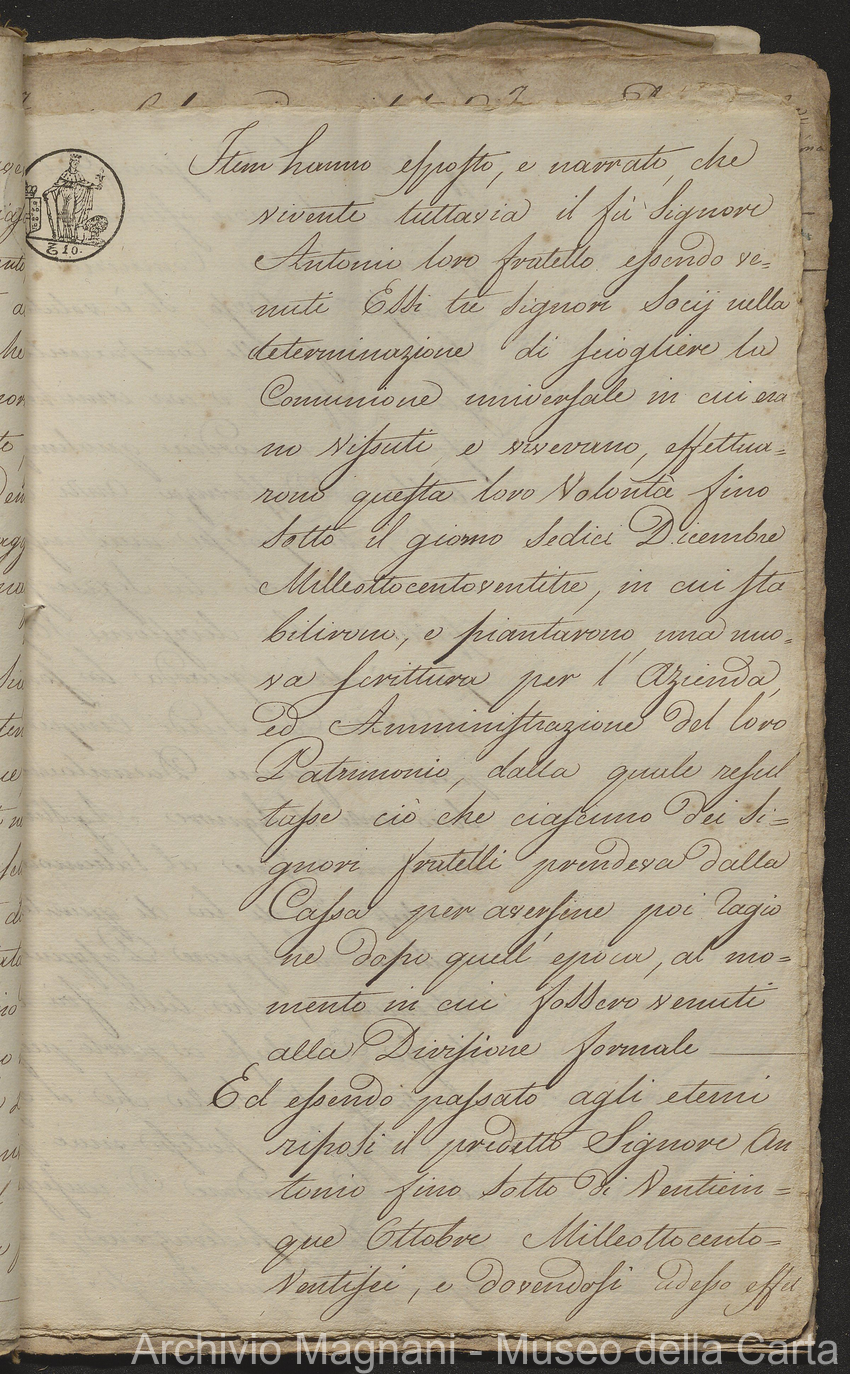 Item hanno esposto, e narrato, che
vivente tuttavia il fù Signore
Antonio loro fratello essendo ve=
nuti Essi tre Signori Socij nella
determinazione di sciogliere la
Comunione universale in cui era
no vissuti, e vivevano, effettua=
rono questa loro Volontà fino
sotto il giorno sedici Dicembre
Milleottocentoventitre, in cui sta
bilirono, e piantarono una nuo=
va scrittura per l'Azienda,
ed Amministrazione del loro
Patrimonio, dalla quale resul
tasse ciò che ciascuno dei Si=
gnori fratelli prendeva dalla
Cassa per aversine poi ragio
ne dopo quell'epoca, al mo=
mento in cui fossero venuti
alla Divisione formale
Ed essendo passato agli eterni
riposi il predetto Signore An
tonio fino sotto dì Venticin=
que Ottobre Milleottocento=
Ventisei, e dovendosi adesso effet
10.
Archivio Magnani - Museo della Carta